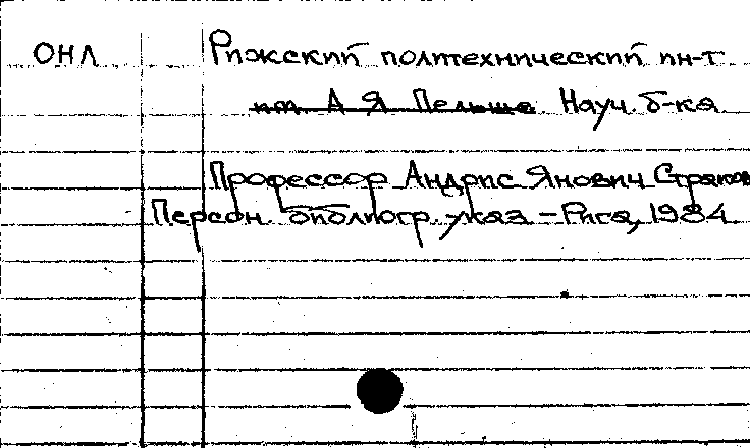 ОНЛ
Рижский политехнический ин-т
им. А Я Пельше Науч. б-ка
Профессор Андрис Янович Страков
Персон. библиогр. указ – Рига, 1984